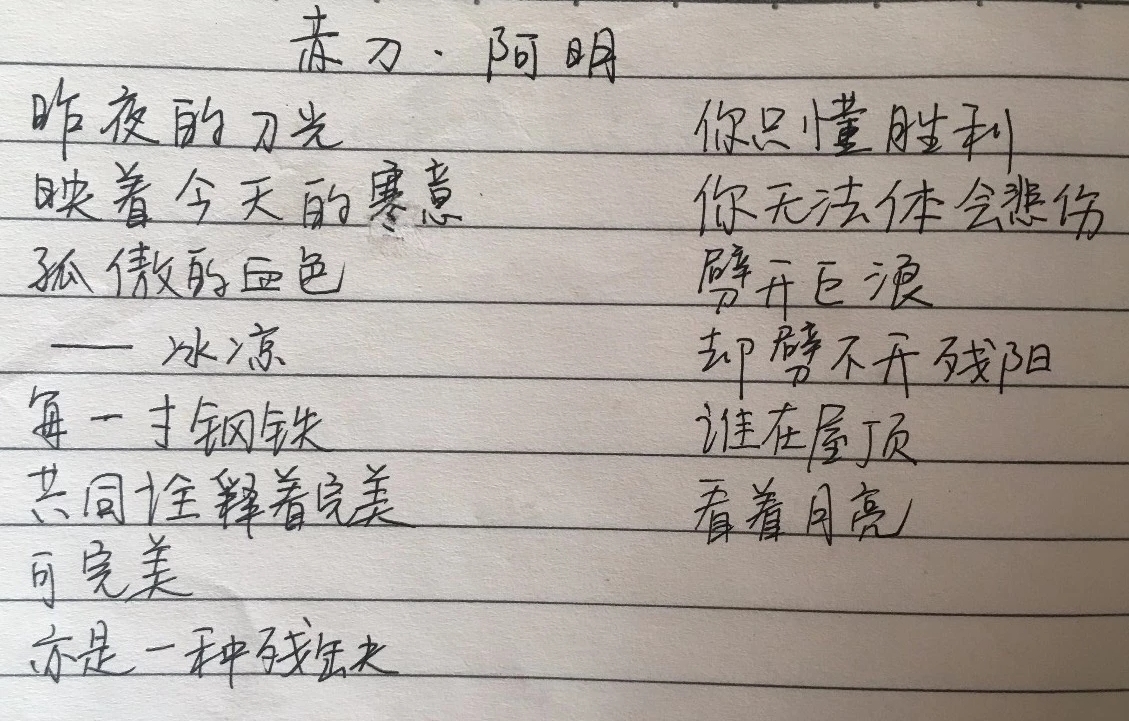 赤刀·阿明
昨夜的刀光
映着今天的寒意
孤傲的血色
——冰凉
每一寸钢铁
共同诠释着完美
可完美
亦是一种残缺
你只懂胜利
你无法体会悲伤
劈开巨浪
却劈不开残阳
谁在屋顶
看着月亮